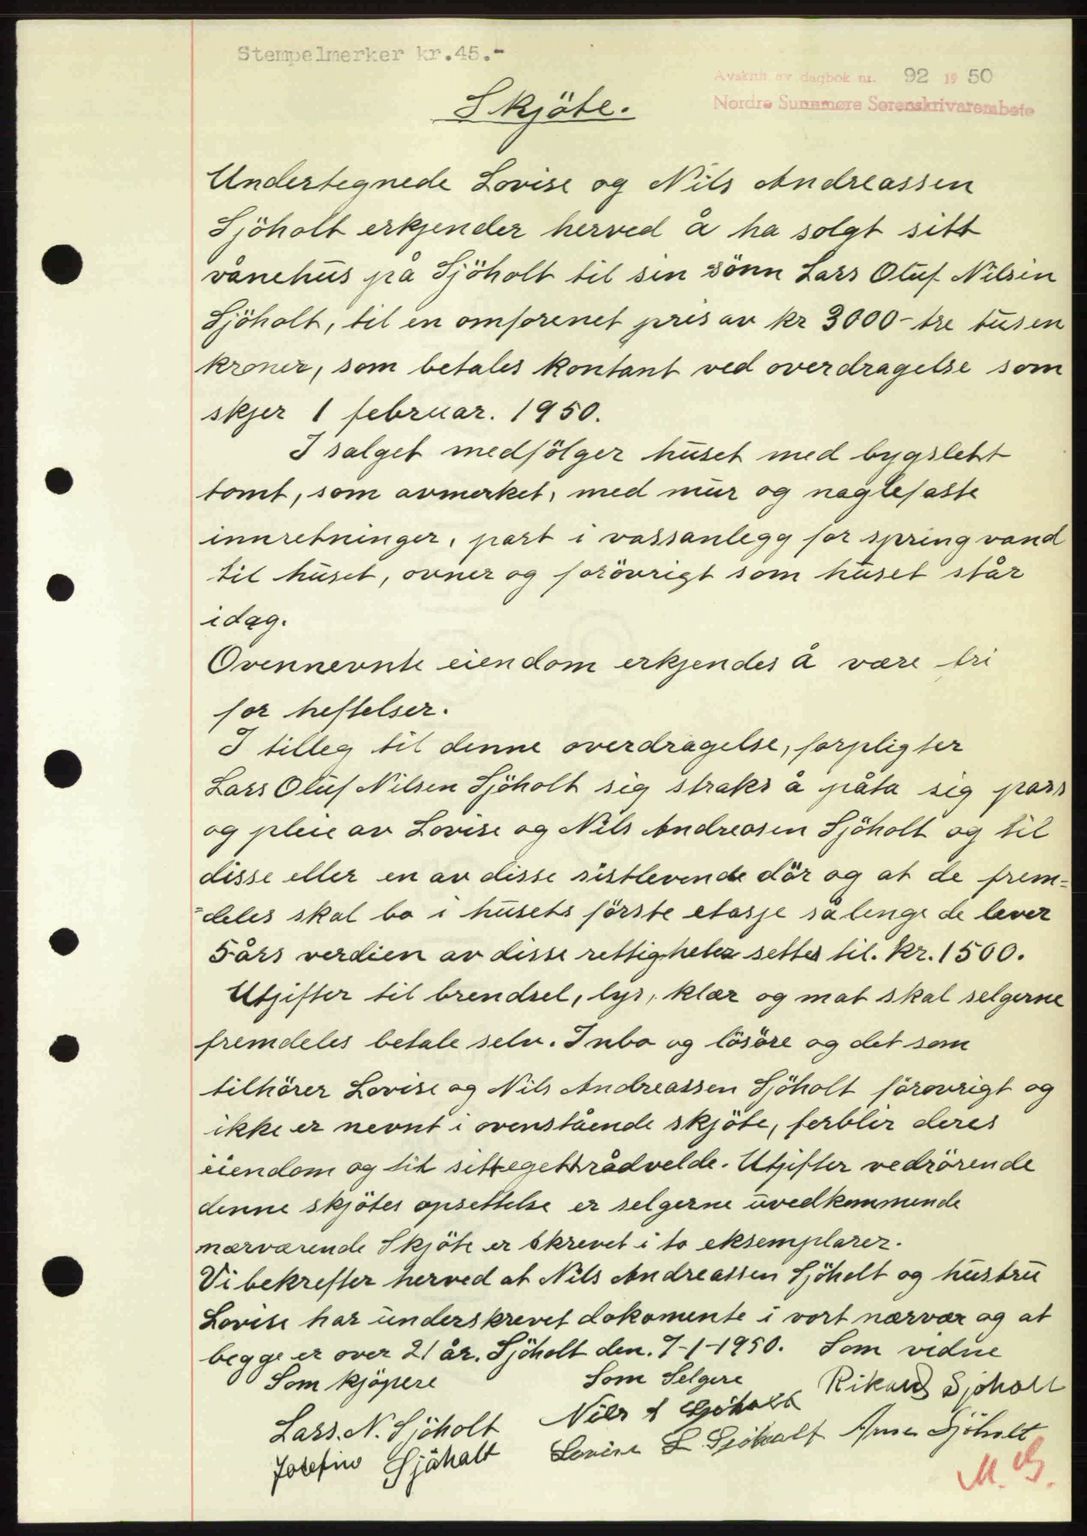 Stempelmerker kr.45.-
Avskrift av dagbok nr. 92 1950
Nordre Sunnmøre Sorenskrivarembete
Skjöte.
Undertegnede Lovise og Nils Andreassen
Sjöholt erkjender herved å ha solgt sitt
vånehus på Sjöholt til sin sönn Lars Oluf Nilsen
Sjöholt, til en omforenet pris av kr 3000- tre tusen
kroner, som betales kontant ved overdragelse som
skjer 1 februar. 1950.
I salget medfölger huset med bygslett
tomt, som avmerket, med mur og naglefaste
innretninger, part i vassanlegg for spring vand
til huset, ovner og forövrigt som huset står
idag.
Ovennevnte eiendom erkjendes å være fri
for heftelser.
I tilleg til denne overdragelse, forpligter
Lars Oluf Nilsen Sjöholt sig straks å påta sig pass
og pleie av Lovise og Nils Andreasen Sjöholt og til
disse eller en av disse sistlevende dör og at de frem=
=deles skal bo i husets förste etasje sålenge de lever
5-års verdien av disse rettigheter settes til. kr. 1500.
Utjifter til brendsel, lys, klær og mat skal selgerne
fremdeles betale selv. Inbo og lösöre og det som
tilhörer Lovise og Nils Andreassen Sjöholt förovrigt og
ikke er nevnt i ovenstående skjöte, forblir deres
eiendom og til sitt eget rådvelde. Utjifter vedrörende
denne skjötes opsettelse er selgerne uvedkommende
nærværende Skjöte er skrevet i to eksemplarer.
Vi bekrefter herved at Nils Andreassen Sjöholt og hustru
Lovise har underskrevet dokumente i vort nærvær og at
begge er over 21 år. Sjöholt den. 7-1-1950. Som vidne
Som kjöpere Som Selgere Rikard Sjöholt
Lars. N. Sjöholt Nils A Sjöholt
Josefine Sjöholt Lovise L Sjöholt Arne Sjöholt
M. G.